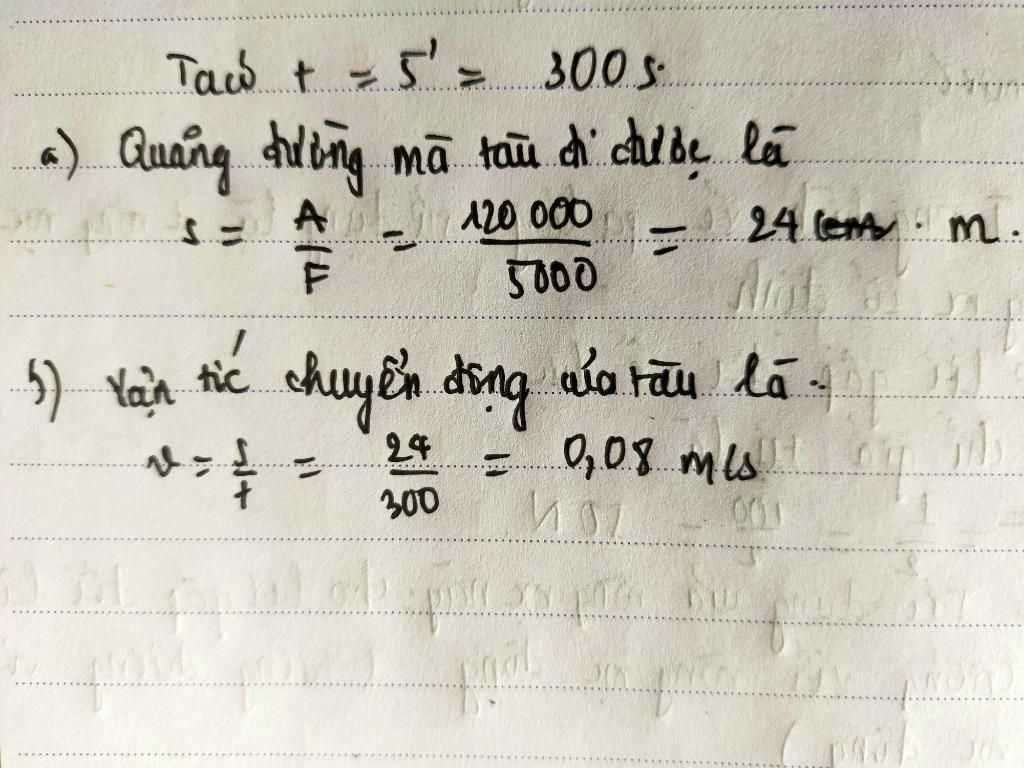 Ta có t = 5' = 300 s.
a) Quảng đường mà tàu đi được là
s = A/F = 120 000/5000 = 24 m.
b) Vận tốc chuyển động của tàu là.
v = s/t = 24/300 = 0,08 m/s